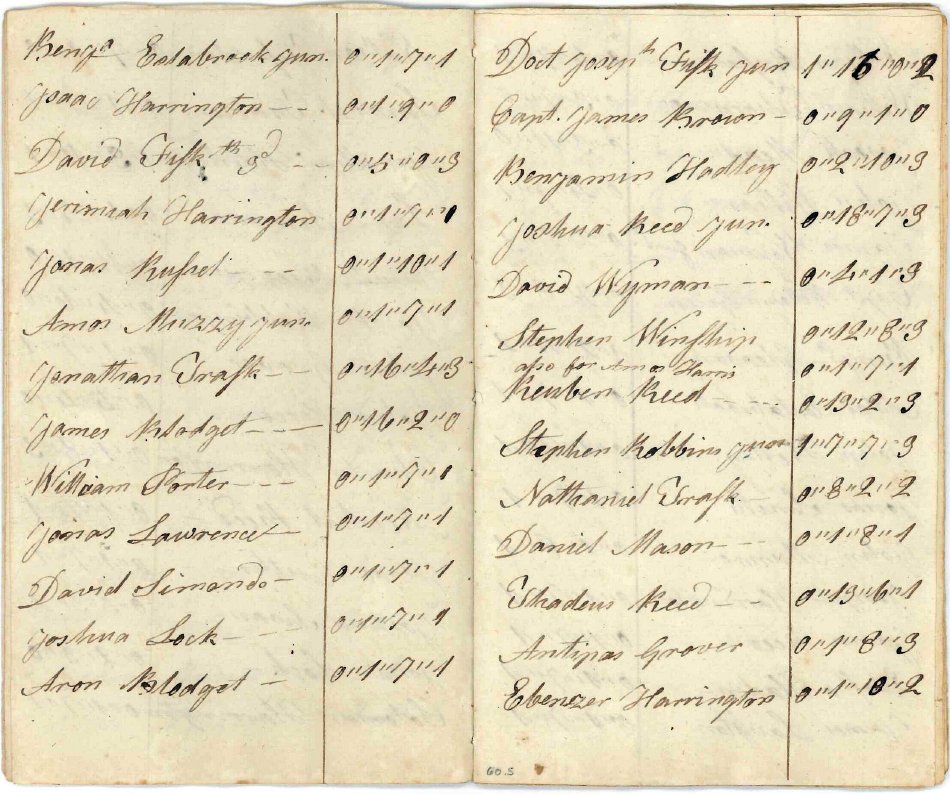 Benja Estabrook Jun. 0"1"7"1
Isaac Harrington 0"1"9"0
David Fisk th 3d 0"5"0"3
Jerimiah Harrington 0"1"7"1
Jonas Russel 0"1"10"1
Amos Muzzy Jun. 0"1"7"1
Jonathan Trask 0"16"4"3
James Blodget 0"16"2"0
William Porter 0"1"7"1
Jonas Lawrence 0"1"7"1
David Simonds 0"1"7"1
Joshua Lock 0"1"7"1
Aron Blodget 0"1"7"1
Doct Joseph Fisk Jun 1"15"0"2
Capt. James Brown 0"9"1"0
Benjamin Hadley 0"2"10"3
Joshua Reed Jun. 0"18"7"3
David Wyman 0"4"1"3
Stephen Winship 0"12"8"3
also for Amos Harris 0"1"7"1
Reuben Reed 0"13"2"3
Stephen Robbins Junr 1"7"7"3
Nathaniel Trask 0"8"2"2
Daniel Mason 0"1"8"1
Thadeus Reed 0"13"6"1
Antipas Grover 0"1"8"3
Ebenezer Harrington 0"1"10"2
60.5